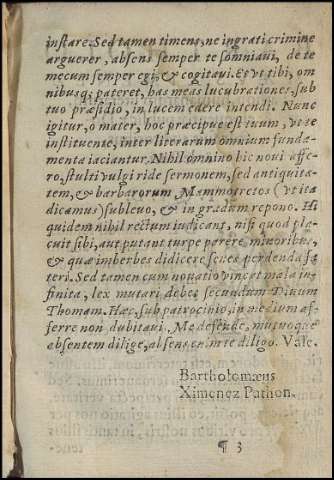 instare. Sed tamen timens, ne ingrati crimine
arguerer, absens semper te somniaui, de te
mecum semper egi, & cogitaui. Et vt tibi, om
nibusq; pateret, has meas lucubrationes, sub
tuo præsidio, in lucem edere intendi. Nunc
igitur, o mater, hoc præcipue est tuum, vt se
instituensæ, inter literarum omnium funda-
menta iaciantur. Nihil omnino hic noui affe-
ro, stulti vulgi ride sermonem, sed antiquita
tem, & barbarorum Mammotretos (vt ita
dicamus) subleuo, & in gradum repono. Hi
quidem nihil rectum iudicant, nisi quod pla-
cuit sibi, aut putant turpe parere minoribus,
& quæ imberbes didicere senes perdenda fa
teri. Sed tamen cum nouatio vincat mala in-
finita, lex mutari debet secundum Diuum
Thomam. Hæc, sub patrocinio, in medium af-
ferre non dubitaui. Me defende, mutuoque
absentem dilige, absens enim te diligo. Vale.
Bartholomæus
Ximenez Pathon.
¶ 3